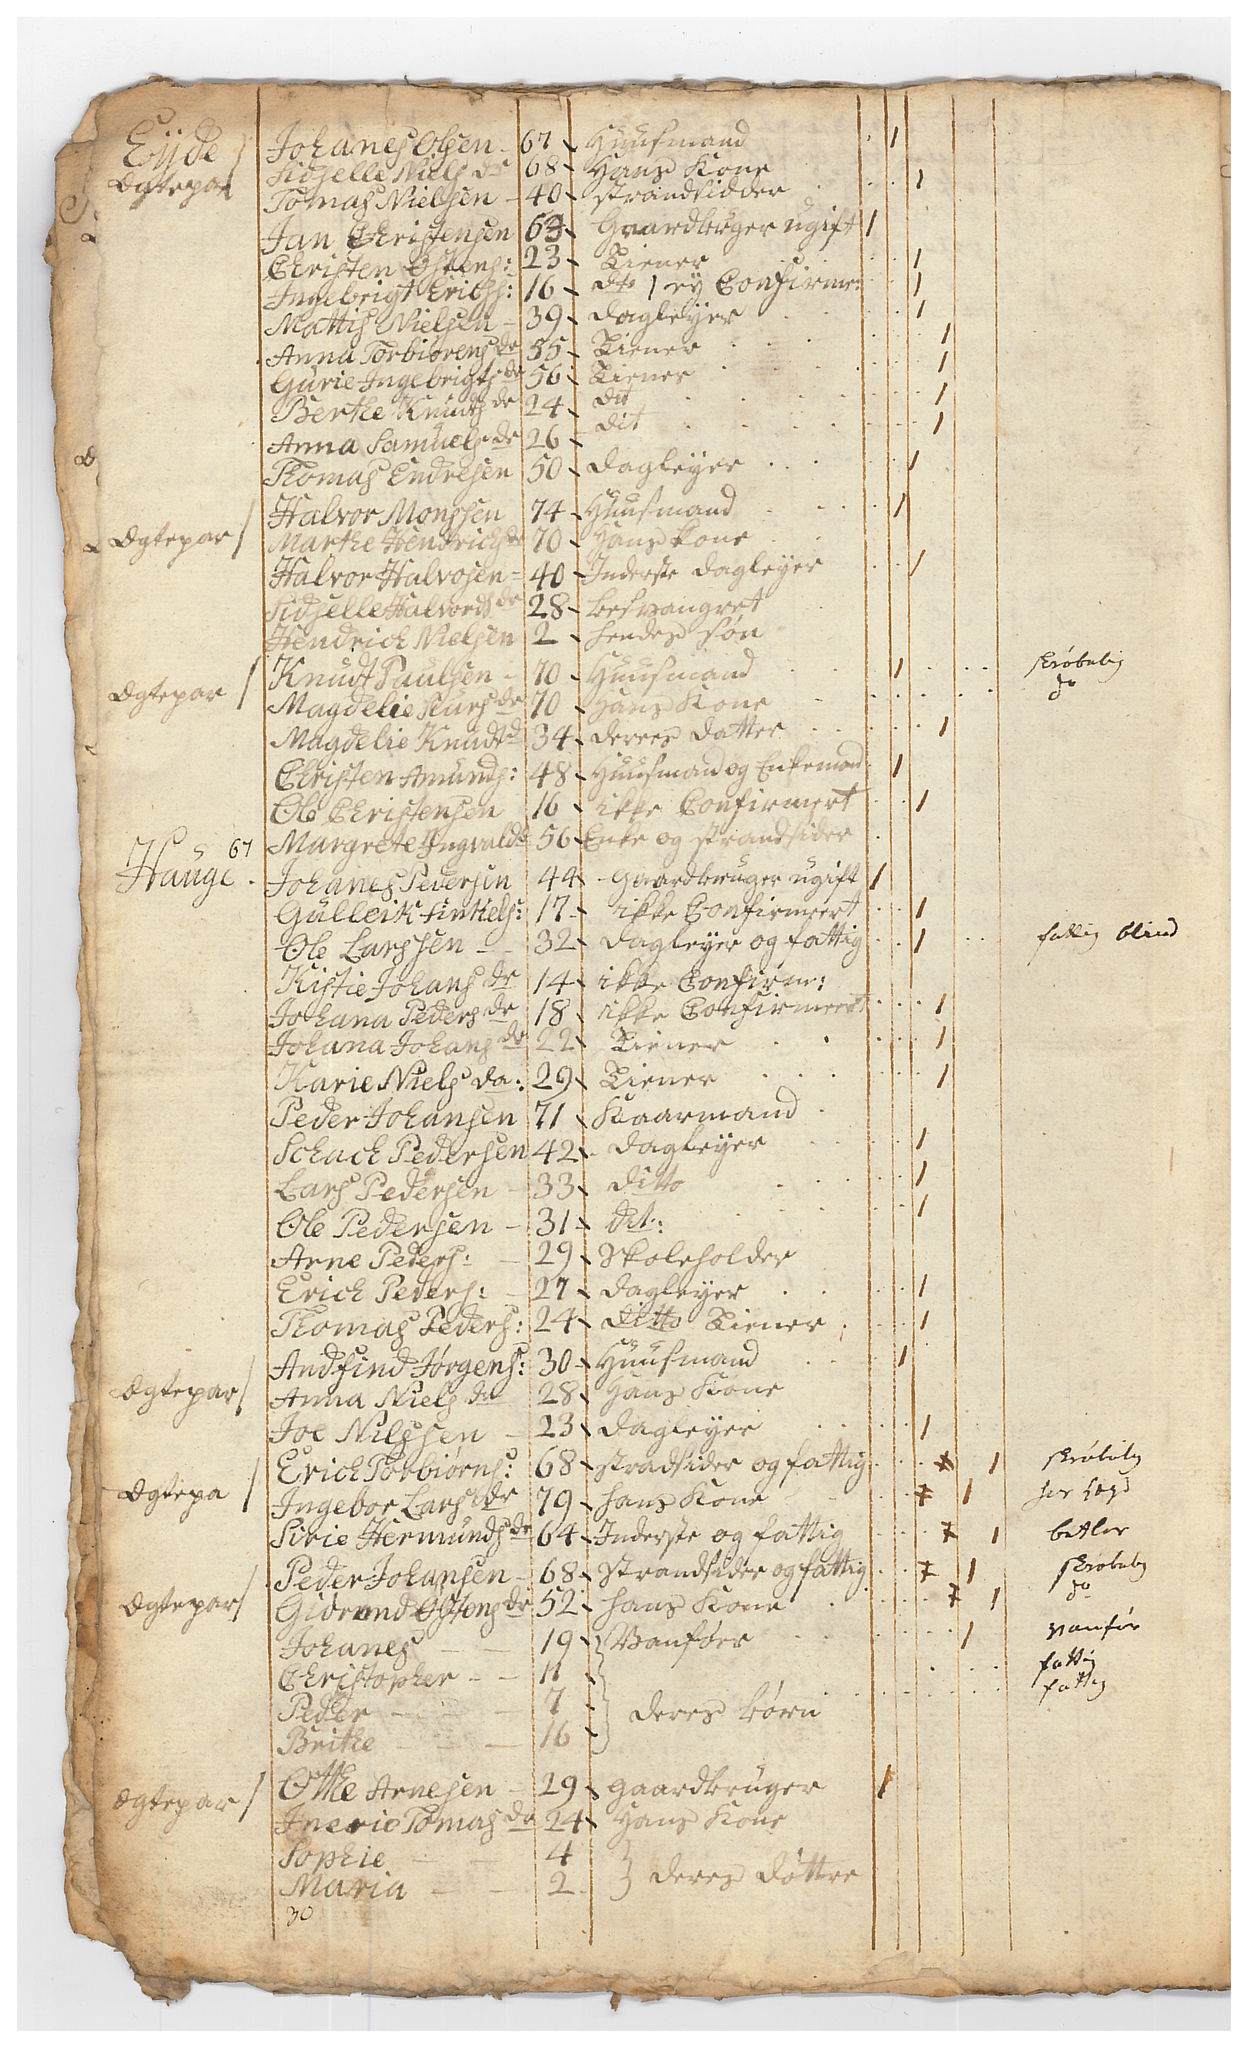 Eÿde / Johanes Olsen - 67 - Huusmand
Ægtepar Sidselle Niels dr 68 - Hans Kone
Tomas Nielsen - 40 - strandsidder
Jan Christensen 63 - Gaardbruger ugift
Christen Østens: 23 - Tiener
Ingebrigt Erichs: 16 - dto / ey Confirme:
Mattis Nielsen - 39 - dagleyer
Anna Torbiørens dr 55 - Tiener
Gurie Ingebrigts dr 56 - Tiener
Berthe Knuds dr 24 - dit
Anna Samuels dr 26 - dit
Thomas Endresen 50 - dagleyer
Halvor Monssen 74 - Huusmand
Ægtepar / Marthe Hendrichs dr 70 - Hans kone
Halvor Halvosen - 40 - Inderste dagleyer
Sidselle Halvords dr 28 - besvangret
Hendrich Nielsen 2 - hendes søn
Knudt Paulsen - 70 - Huusmand skrøbelig
Ægtepar / Magdelie dr 70 - Hans Kone do
Magdelie Knudtd 34 - deres datter
Christen Amunds: 48 - Huusmand og Enkemand
Ole Christensen 16 - ikke Confirmert
67 Margrete Ingvalds 56 - Enke og strandsider
Hauge . Johanes Pedersen 44 - gaardbruger ugift
Gulleik kels: 17 - ikke Confirmeert
Ole Larssen - - 32 - dagleyer og fattig fattig blind
Kistie Johans dr 14 - ikke Confirm:
Johana Peders dr 18 - ikke Confirmeert
Johana Johans dr 22 - Tiener
Karie Niels da: 29 - Tiener
Peder Johansen 71 - Kaarmand
Schach Pedersen 42 - dagleyer
Lars Pedersen - 33 - ditto
Ole Pedersen - 31 - dit:
Arne Peders: - 29 - Skoleholder
Erich Peders: - 27 - dagleyer
Thomas Peders: 24 - ditto Tiener
Andfind Jørgens: 30 - Huusmand
Ægtepar / Anna Niels da 28 - Hans Kone
Joe Nilssen - 23 - dagleyer
Erich Torbiørns: 68 - stradsider og fattig skrøbelig
Ægtepa / Ingebor Lars dr 79 - hans Kone
Sirie Hermunds dr 64 - Inderste og fattig betler
Peder Johansen - 68 - Strandsider og fattig skrøbelig
Ægtepar / Østens dr 52 - hans Kone do
Johanes - - 19 - Vanføer vanfør
Christopher - - 11 - fattig
Peder - - - 7 - deres børn fattig
Brithe - - 16 -
Otthe Arnesen - 29 - gaardbruger
Ægtepar / Tomas da 24 - Hans Kone
Sophie - - 4
Maria - - 2 } deres døttre
30